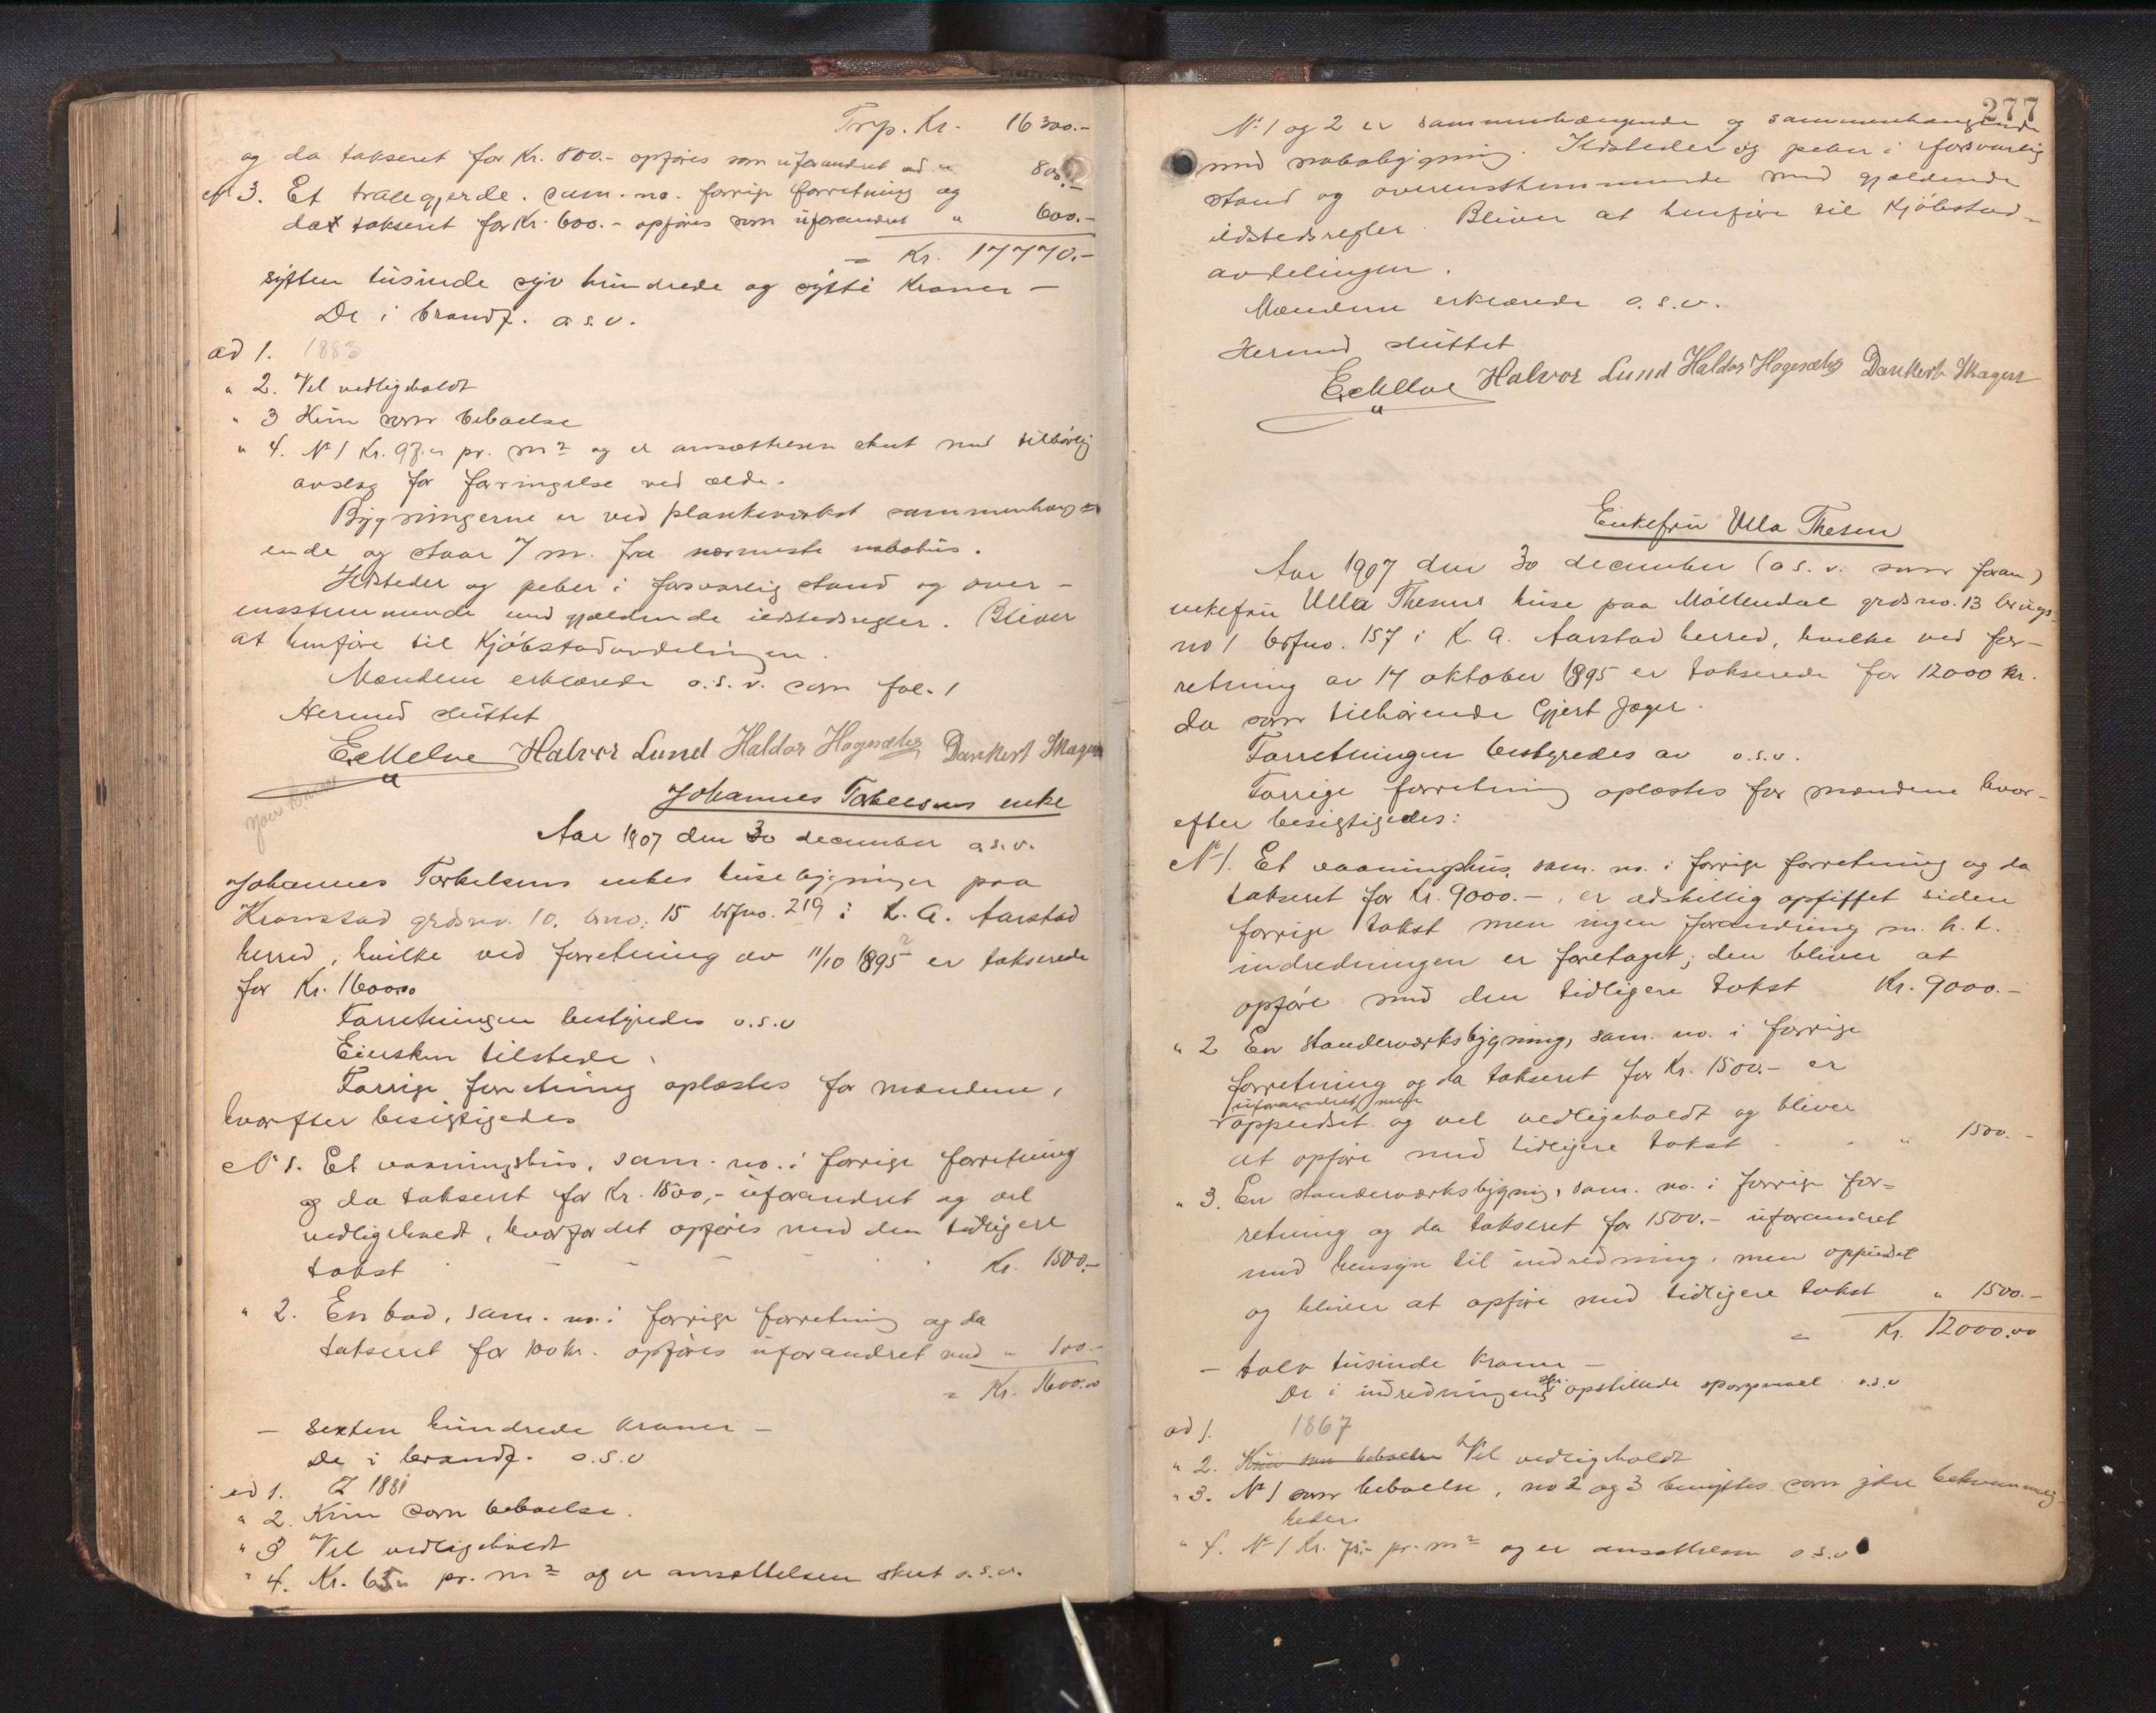 Trsp. Kr. 16300.-
og da takseret for Kr. 800.- opføres som uforandret med " 800.-
No 3. Et trallegjerde. sam. no. forrige forretning og
da takseret for Kr. 600.- opføres som uforandret " 600.-
= Kr. 17770.-
sytten tusinde syv hundrede og sytti kroner -
De i brandf. o.s.v.
ad 1. 1883
" 2. Vel vedligeholdt
" 3 Kun som beboelse
" 4. No 1 Kr. 97.- pr. m2 og er ansættelsen skeet med tilbørlig
avslag for forringelse ved ælde.
Bygningerne er ved plankeverket sammenhæng
ende og staar 7 m. fra nærmeste nabohus.
Ildsteder og peber i forsvarlig stand og over-
ensstemmende med gjældende ildstedsregler. Bliver
at henføre til Kjøbstadavdelingen.
Mændene erklærede o.s.v. som fol. 1
Hermed sluttet
Halvor Lund Haldor Hagesæter Dankert Skagen
Johannes Torkelsens enke
Aar 1907 den 30 december o.s.v.
Johannes Torkelsens enkes husebygninger paa
Kronstad grdsno. 10, brno. 15 brfno. 219 i K. A. Aarstad
herred, hvilke ved forretning av 11/10 1895 er takserede
for Kr. 1600.00
Forretningen bestyredes o.s.v
Eiersken tilstede.
Forrige forretning oplæstes for mændene,
hvorefter besigtigedes
No 1. Et vaaningshus, sam. no. i forrige forretning
og da takseret for Kr. 1500,- uforandret og vel
vedligeholdt, hvorfor det opføres med den tidligere
takst Kr. 1500.-
" 2. En bod, sam. no. i forrige forretning og da
takseret for 100 kr. opføres uforandret med " 100.-
= Kr. 1600.00
- Sexten hundrede kroner -
De i brandf. o.s.v
ad 1. 1881
" 2. Kun som beboelse.
" 3 Vel vedligeholdt
" 4. Kr. 65.- pr. m2 og er ansættelsen skeet o.s.v.
277
No 1 og 2 er sammenhængende og sammenhængende
med nabobygning. Ildsteder og peber i forsvarlig
stand og overensstemmende med gjældende
ildstedsregler. Bliver at henføre til Kjøbstad-
avdelingen.
Mændene erklærede o.s.v.
Hermed sluttet
Halvor Lund Haldor Hagesæter Dankert Skagen
Enkefru Ulla Thesen
Aar 1907 den 30 december (o.s.v. som foran)
enkefru Ulla Thesens huse paa Møllendal grdsno. 13 brugs-
no 1 brfno. 157 i K. A. Aarstad herred, hvilke ved for-
retning av 14 oktober 1895 er takserede for 12000 kr.
da som tilhørende Gjert Jæger.
Forretningen bestyredes av o.s.v.
Forrige forretning oplæstes for mændene hvor-
efter besigtigedes:
No 1. Et vaaningshus, sam. no. i forrige forretning og da
takseret for Kr. 9000.-, er adskillig opfiffet siden
forrige takst men ingen forandring m. h. t.
indredningen er foretaget; den bliver at
opføre med den tidligere takst Kr. 9000.-
" 2 En standerværksbygning, sam. no. i forrige
forretning og da takseret for Kr. 1500.- er
uforandret, men
oppudset og vel vedligeholdt og bliver
at opføre med tidligere takst " 1500.-
" 3. En standerværksbygnig, sam. no. i forrige for=
retning og da takseret for 1500.- uforandret
med hensyn til indredning, men oppudset
og bliver at opføre med tidligere takst " 1500.-
= Kr. 12000.00
- tolv tusinde kroner -
De i indredningens opstillede spørgsmaal o.s.v
ad 1. 1867
" 2. Kun som beboelse Vel vedligeholdt
" 3. No 1 som beboelse, no 2 og 3 benyttes som ytre bekvemmelig-
heder.
" 4. No 1 Kr. 75.- pr. m2 og er ansættelsen o.s.v